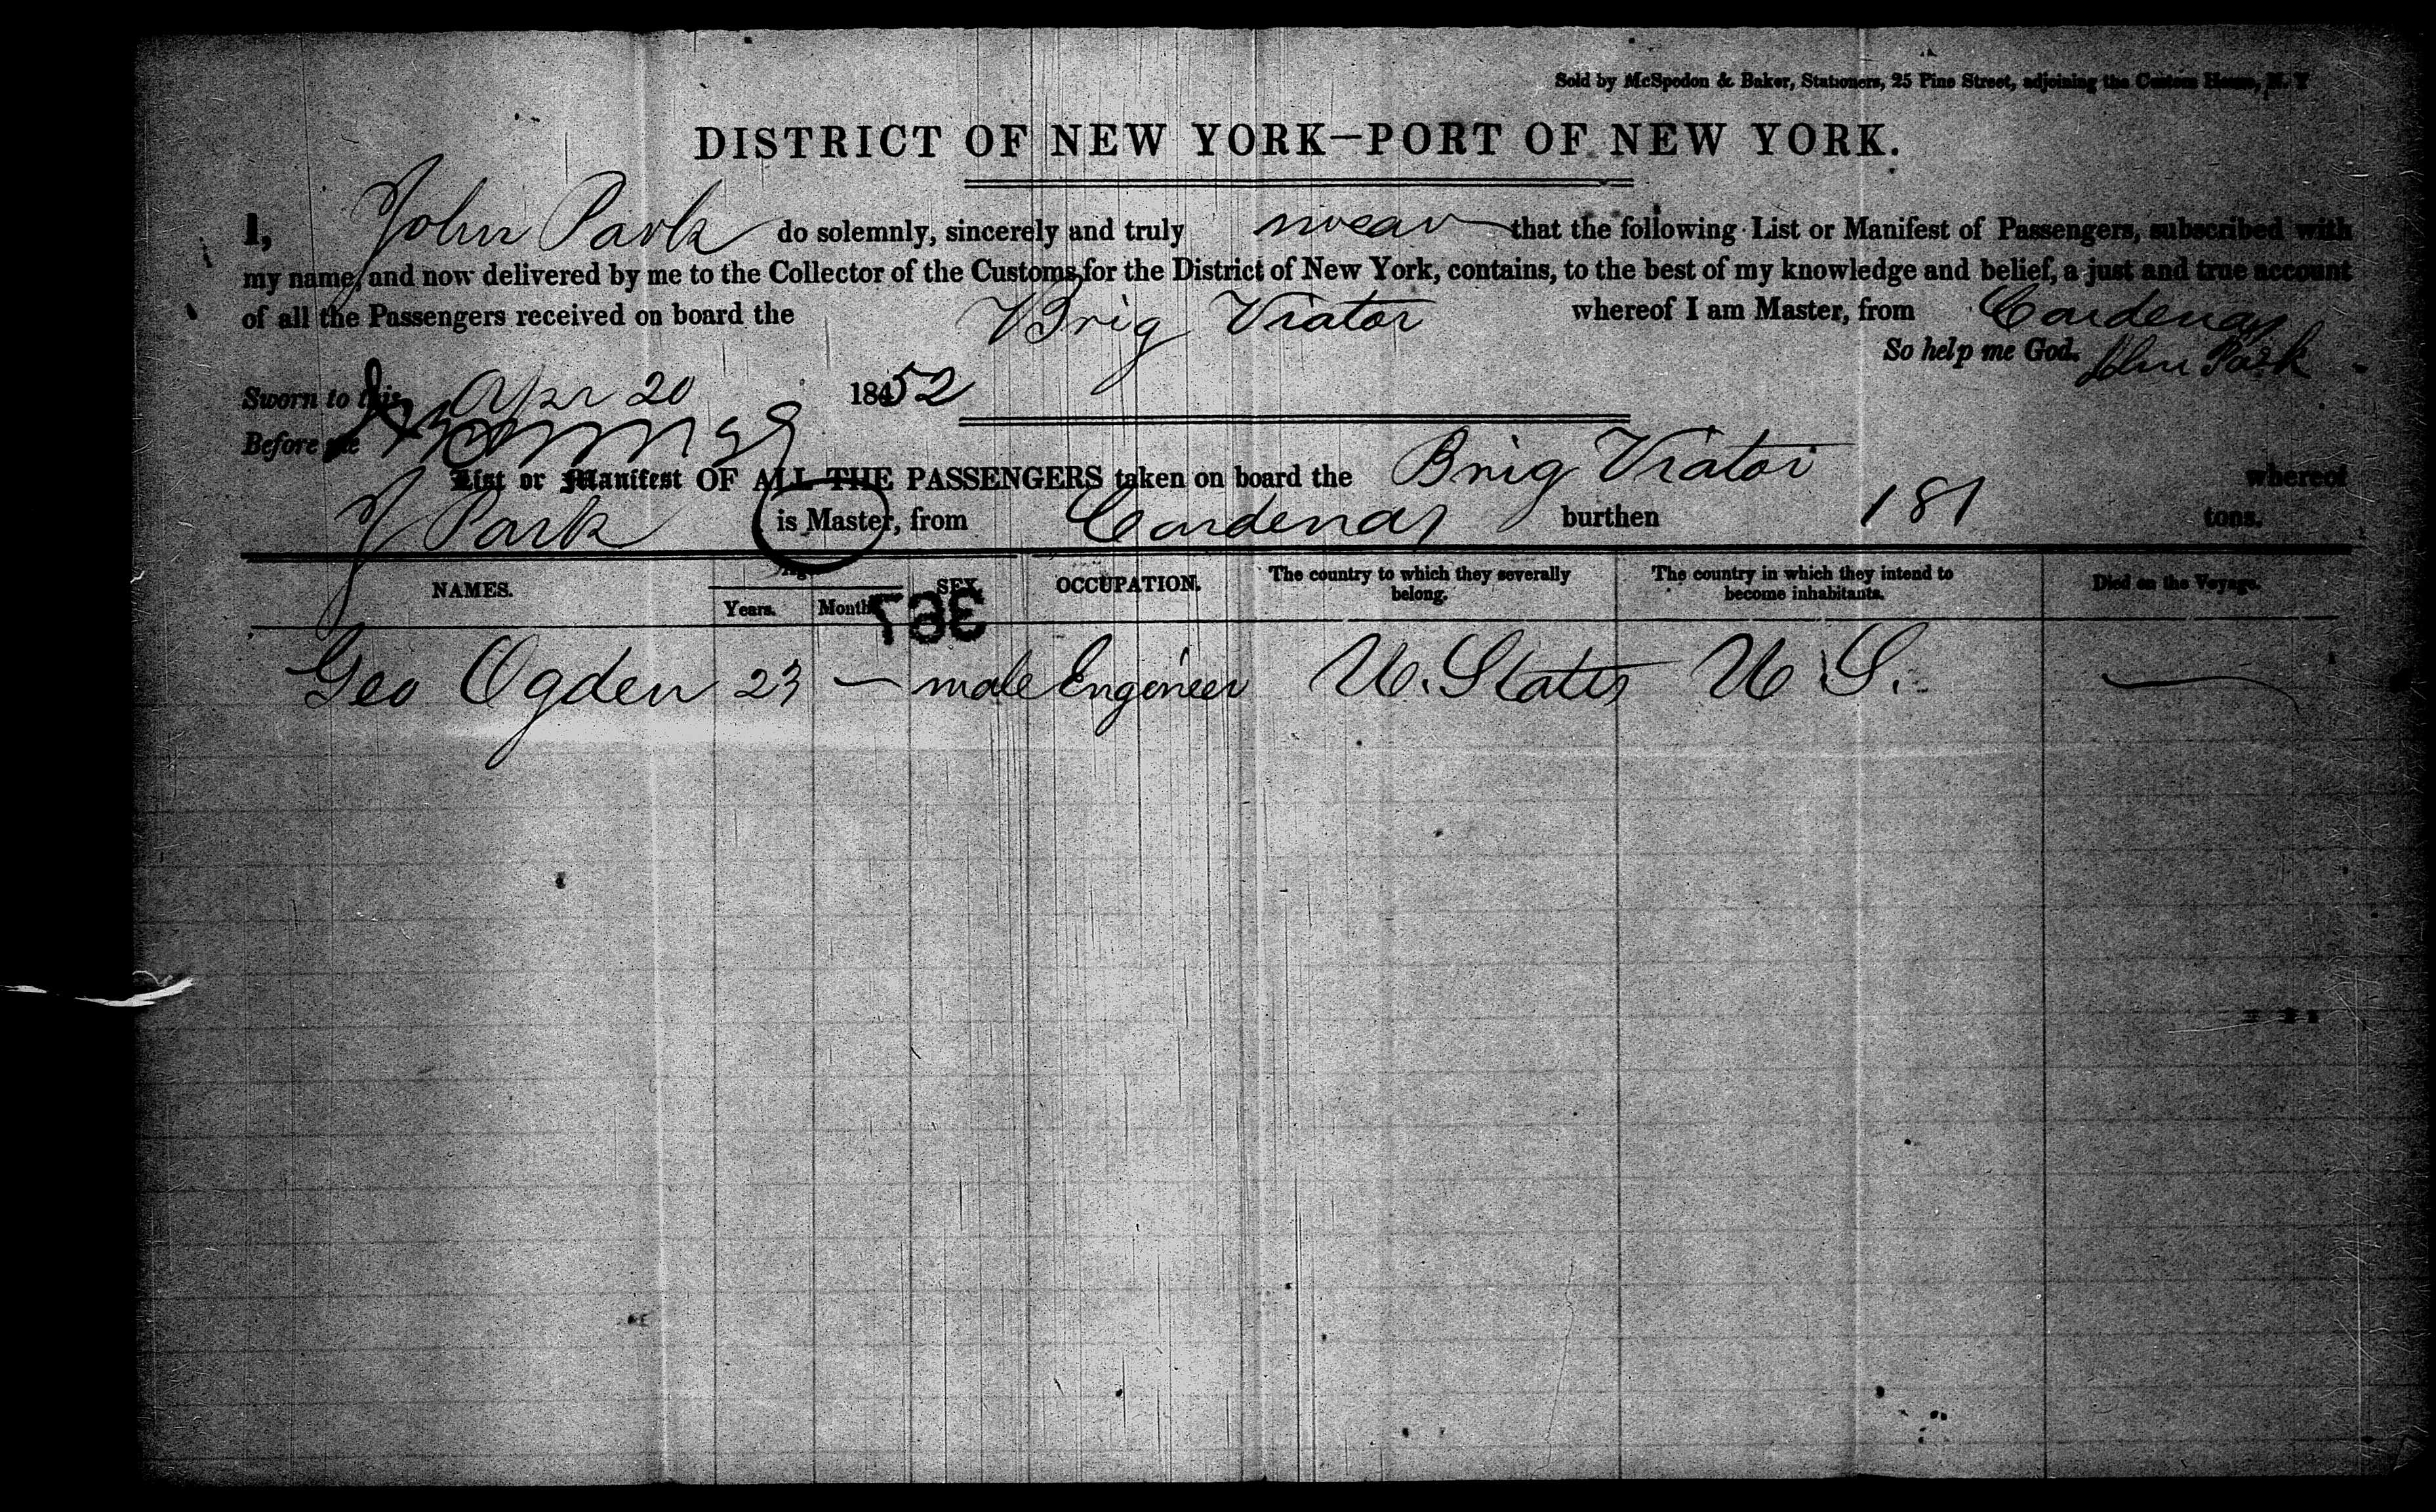 Sold by McSpedon & Baker, Stationers, 25 Pine Street, adjoining the Custom House, N. Y
DISTRICT OF NEW YORK—PORT OF NEW YORK.
I, John Park do solemnly, sincerely and truly swear that the following List or Manifest of Passengers, subscribed with
my name, and now delivered by me to the Collector of the Customs for the District of New York, contains, to the best of my knowledge and belief, a just and true account
of all the Passengers received on board the Brig Viator whereof I am Master, from Cardenas
So help me God. John Park
Sworn to this Apr 20 18452
Before me
List or Manifest OF ALL THE PASSENGERS taken on board the Brig Viator whereof
J Park is Master, from Cardenas burthen 181 tons.
NAMES. Age SEX OCCUPATION. The country to which they severally belong. The country in which they intend to become inhabitants. Died on the Voyage.
Years. Months
367
Geo Ogden 23 — male Engineer U. States U S. —